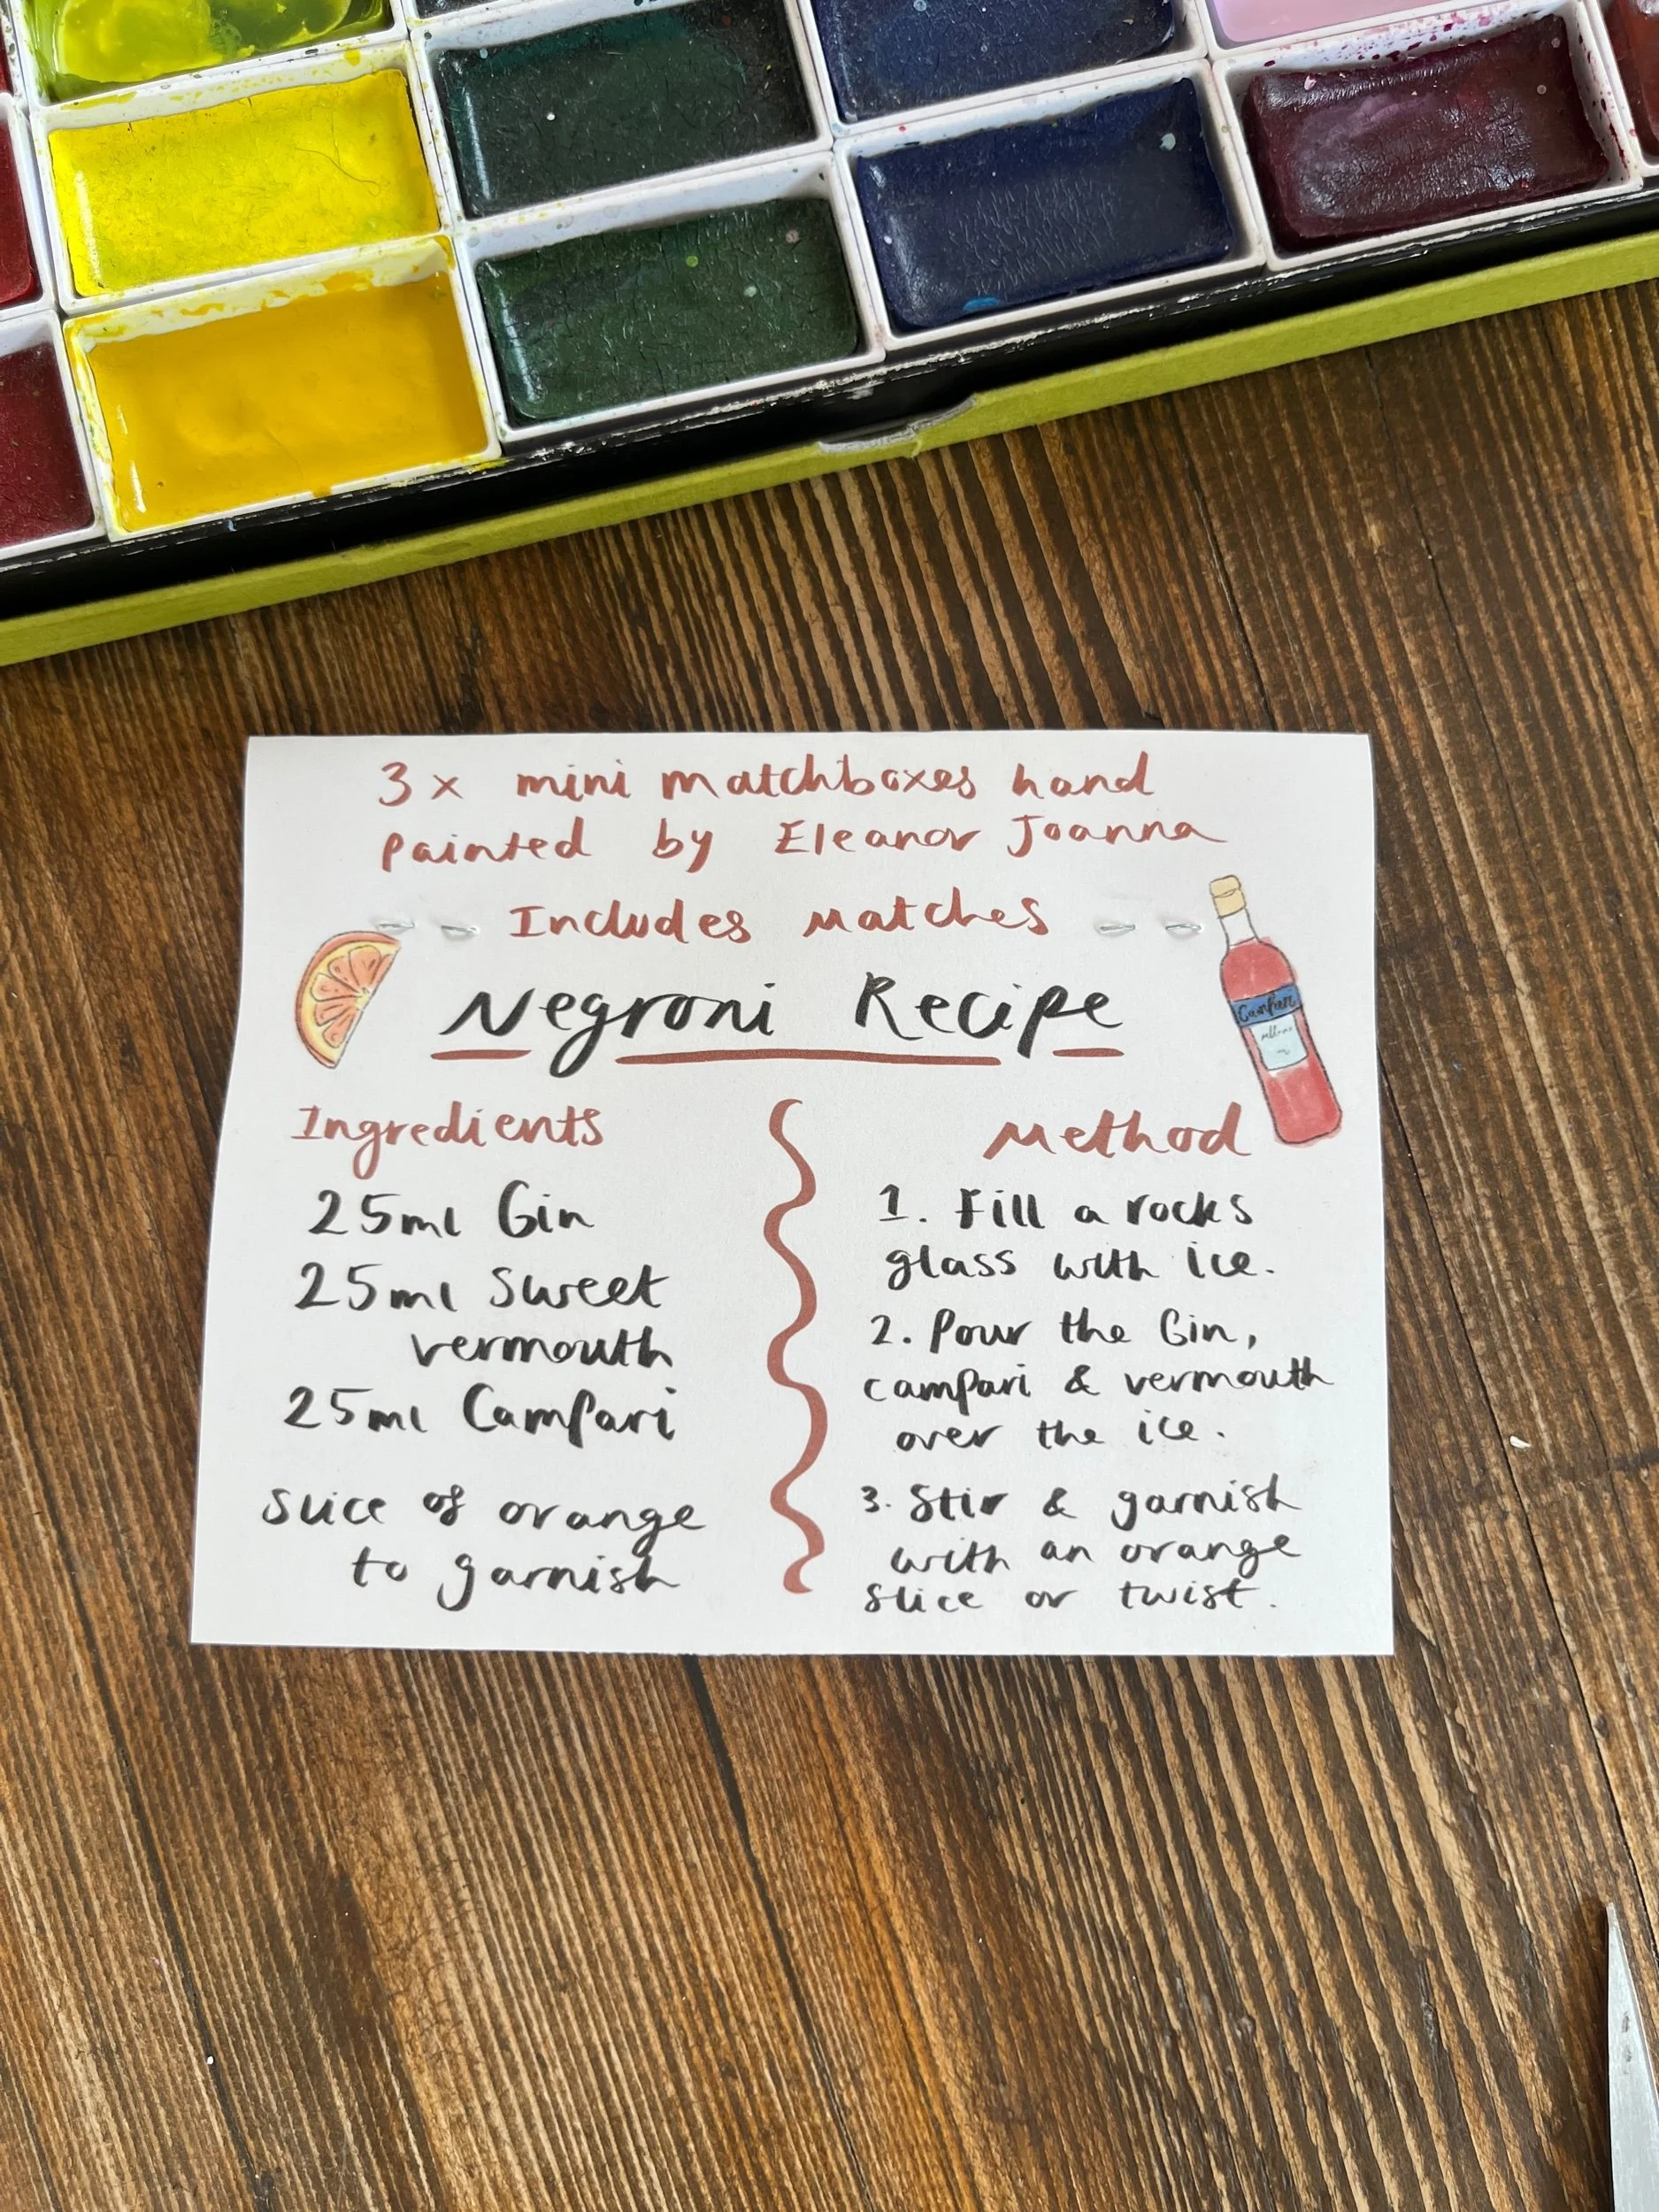 3 x mini matchboxes hand
painted by Eleanor Joanna
Includes matches
Negroni Recipe
Campari
Ingredients
25ml Gin
25ml Sweet
vermouth
25ml Campari
slice of orange
to garnish
Method
1. Fill a rocks
glass with ice.
2. Pour the Gin,
campari & vermouth
over the ice.
3. Stir & garnish
with an orange
slice or twist.